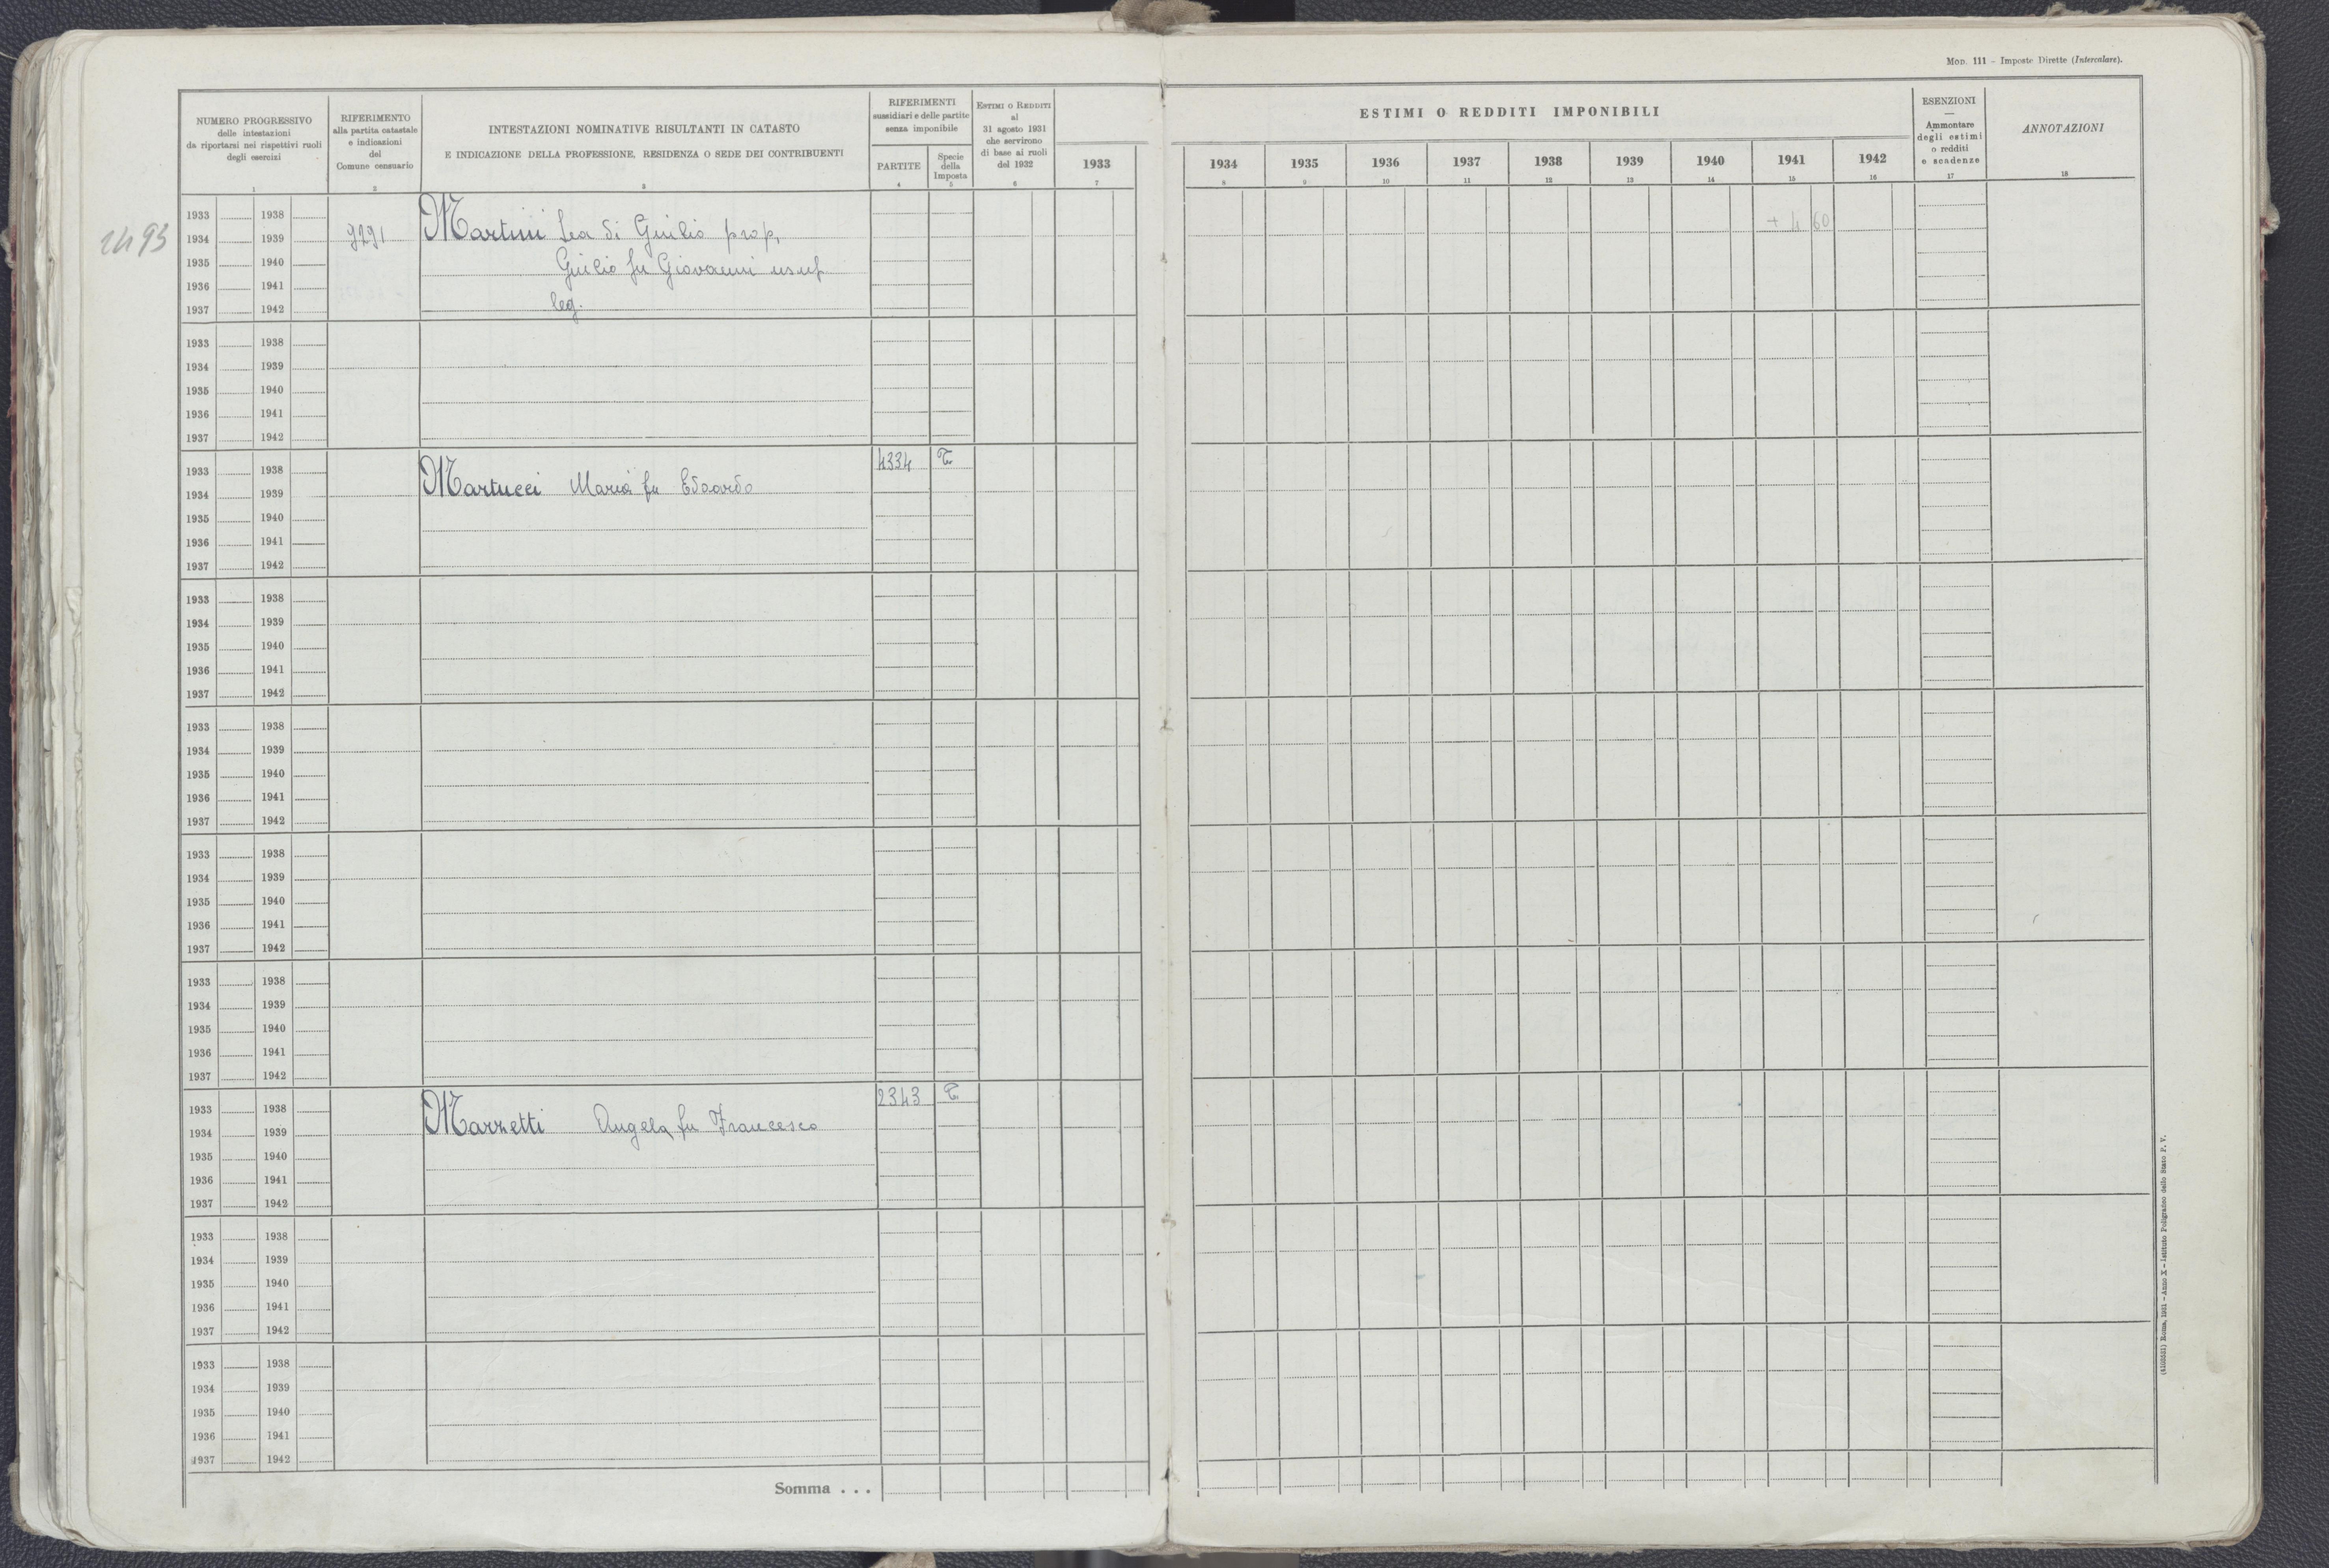 Mod. 111 – Imposte Dirette (Intercalare).
NUMERO PROGRESSIVO
delle intestazioni
da riportarsi nei rispettivi ruoli
degli esercizi
1
RIFERIMENTO
alla partita catastale
e indicazioni
del
Comune censuario
2
INTESTAZIONI NOMINATIVE RISULTANTI IN CATASTO
E INDICAZIONE DELLA PROFESSIONE, RESIDENZA O SEDE DEI CONTRIBUENTI
3
RIFERIMENTI
sussidiari e delle partite
senza imponibile
PARTITE
4
Specie
della
Imposta
5
ESTIMI O REDDITI
al
31 agosto 1931
che servirono
di base ai ruoli
del 1932
6
1933
7
ESTIMI O REDDITI IMPONIBILI
1934 1935 1936 1937 1938 1939 1940 1941 1942
8 9 10 11 12 13 14 15 16
ESENZIONI
—
Ammontare
degli estimi
o redditi
e scadenze
17
ANNOTAZIONI
18
2493
1933 1938
1934 1939 9291 Martini Lea di Guilio prop, + 4 60
1935 1940 Guilio fu Giovanni usuf
1936 1941
1937 1942 leg.
1933 1938
1934 1939
1935 1940
1936 1941
1937 1942
1933 1938 4334 T
1934 1939 Martucci Maria fu Edoardo
1935 1940
1936 1941
1937 1942
1933 1938
1934 1939
1935 1940
1936 1941
1937 1942
1933 1938
1934 1939
1935 1940
1936 1941
1937 1942
1933 1938
1934 1939
1935 1940
1936 1941
1937 1942
1933 1938
1934 1939
1935 1940
1936 1941
1937 1942
1933 1938 2343 T
1934 1939 Marzetti Angela fu Francesco
1935 1940
1936 1941
1937 1942
1933 1938
1934 1939
1935 1940
1936 1941
1937 1942
1933 1938
1934 1939
1935 1940
1936 1941
1937 1942
Somma . . .
Roma, 1931 – Anno X – Istituto Poligrafico dello Stato P. V.